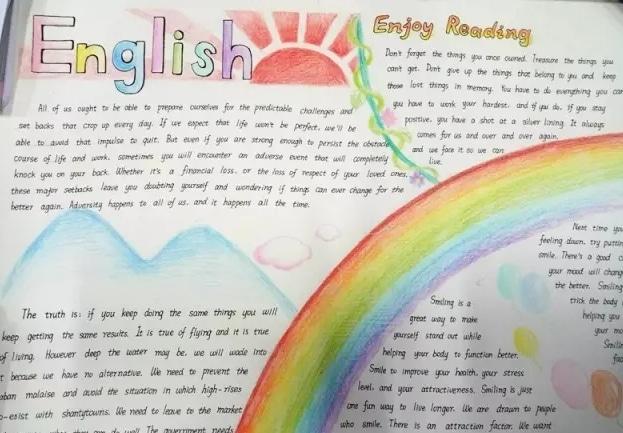 English
All of us ought to be able to prepare ourselves for the predictable challenges and
set backs that crop up every day. If we expect that life won't be perfect, we'll be
able to avoid that impulse to quit. But even if you are strong enough to persist the obstacle
course of life and work, sometimes you will encounter an adverse event that will completely
knock you on your back. Whether it's a financial loss, or the loss of respect of your loved ones,
these major setbacks leave you doubting yourself and wondering if things can ever change for the
better again. Adversity happens to all of us, and it happens all the time.
Enjoy Reading
Don't forget the things you once owned. Treasure the things you
can't get. Don't give up the things that belong to you and keep
those lost things in memory. You have to do everything you can
you have to work your hardest, and if you do, if you stay
positive, you have a shot at a silver lining. It always
comes for us and over and over again.
and we face it so we can
live.
The truth is: if you keep doing the same things you will
keep getting the same results. It is true of flying and it is true
of living. However deep the water may be, we will wade into
t because we have no alternative. We need to prevent the
ban malaise and avoid the situation in which high-rises
o-exist with shantytowns. We need to leave to the market
they can do well. The government needs
Next time you
feeling down, try putting
smile. There's a good c
your mood will change
the better. Smiling
trick the body
helping you
your mo
Smili
Smiling is a
great way to make
yourself stand out while
helping your body to function better.
Smile to improve your health, your stress
level, and your attractiveness. Smiling is just
one fun way to live longer. We are drawn to people
who smile. There is an attraction factor. We want